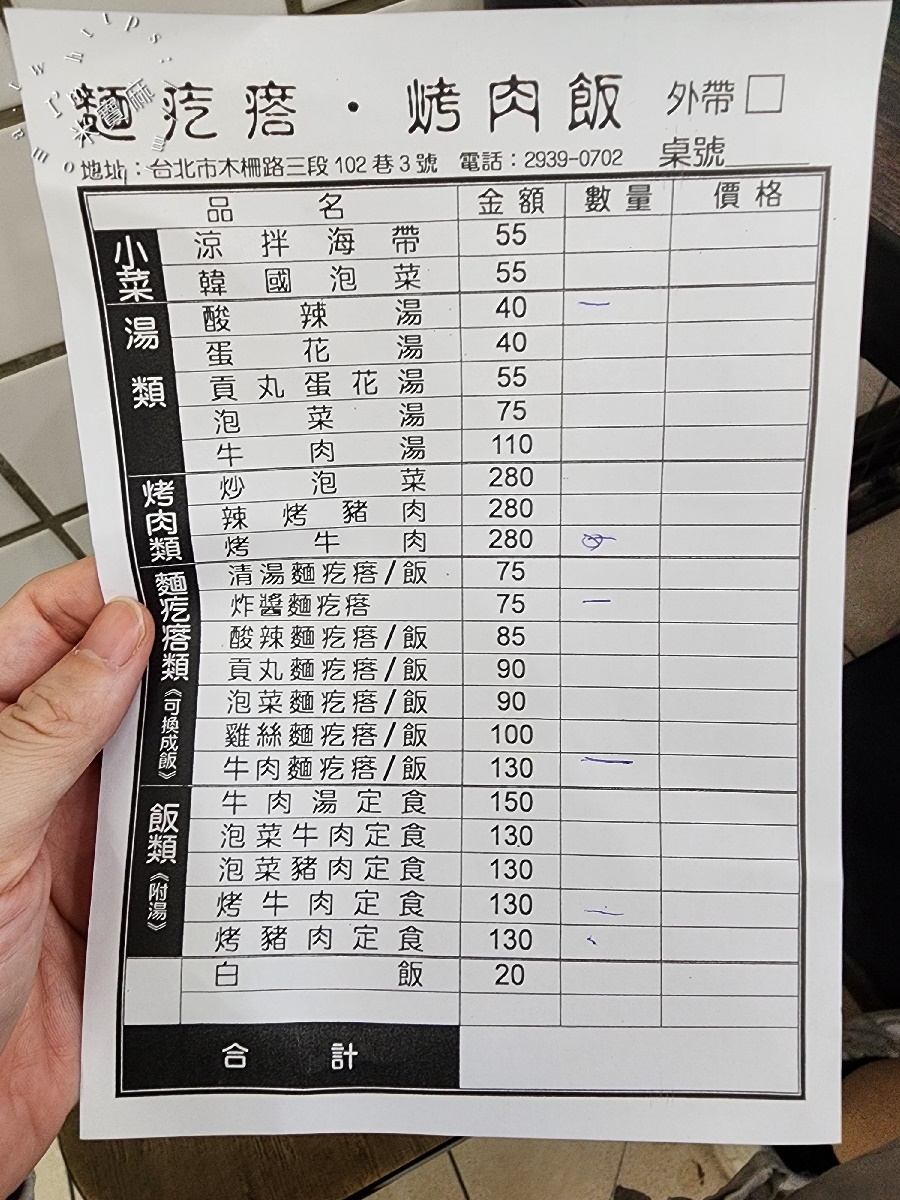 麵疙瘩・烤肉飯 外帶□
地址：台北市木柵路三段102巷3號 電話：2939-0702 桌號
品名 金額 數量 價格
小菜
涼拌海帶 55
韓國泡菜 55
湯類
酸辣湯 40 一
蛋花湯 40
貢丸蛋花湯 55
泡菜湯 75
牛肉湯 110
烤肉類
炒泡菜 280
辣烤豬肉 280
烤牛肉 280
麵疙瘩類《可換成飯》
清湯麵疙瘩/飯 75
炸醬麵疙瘩 75 一
酸辣麵疙瘩/飯 85
貢丸麵疙瘩/飯 90
泡菜麵疙瘩/飯 90
雞絲麵疙瘩/飯 100
牛肉麵疙瘩/飯 130 一
飯類《附湯》
牛肉湯定食 150
泡菜牛肉定食 130
泡菜豬肉定食 130
烤牛肉定食 130 一
烤豬肉定食 130
白飯 20
合計